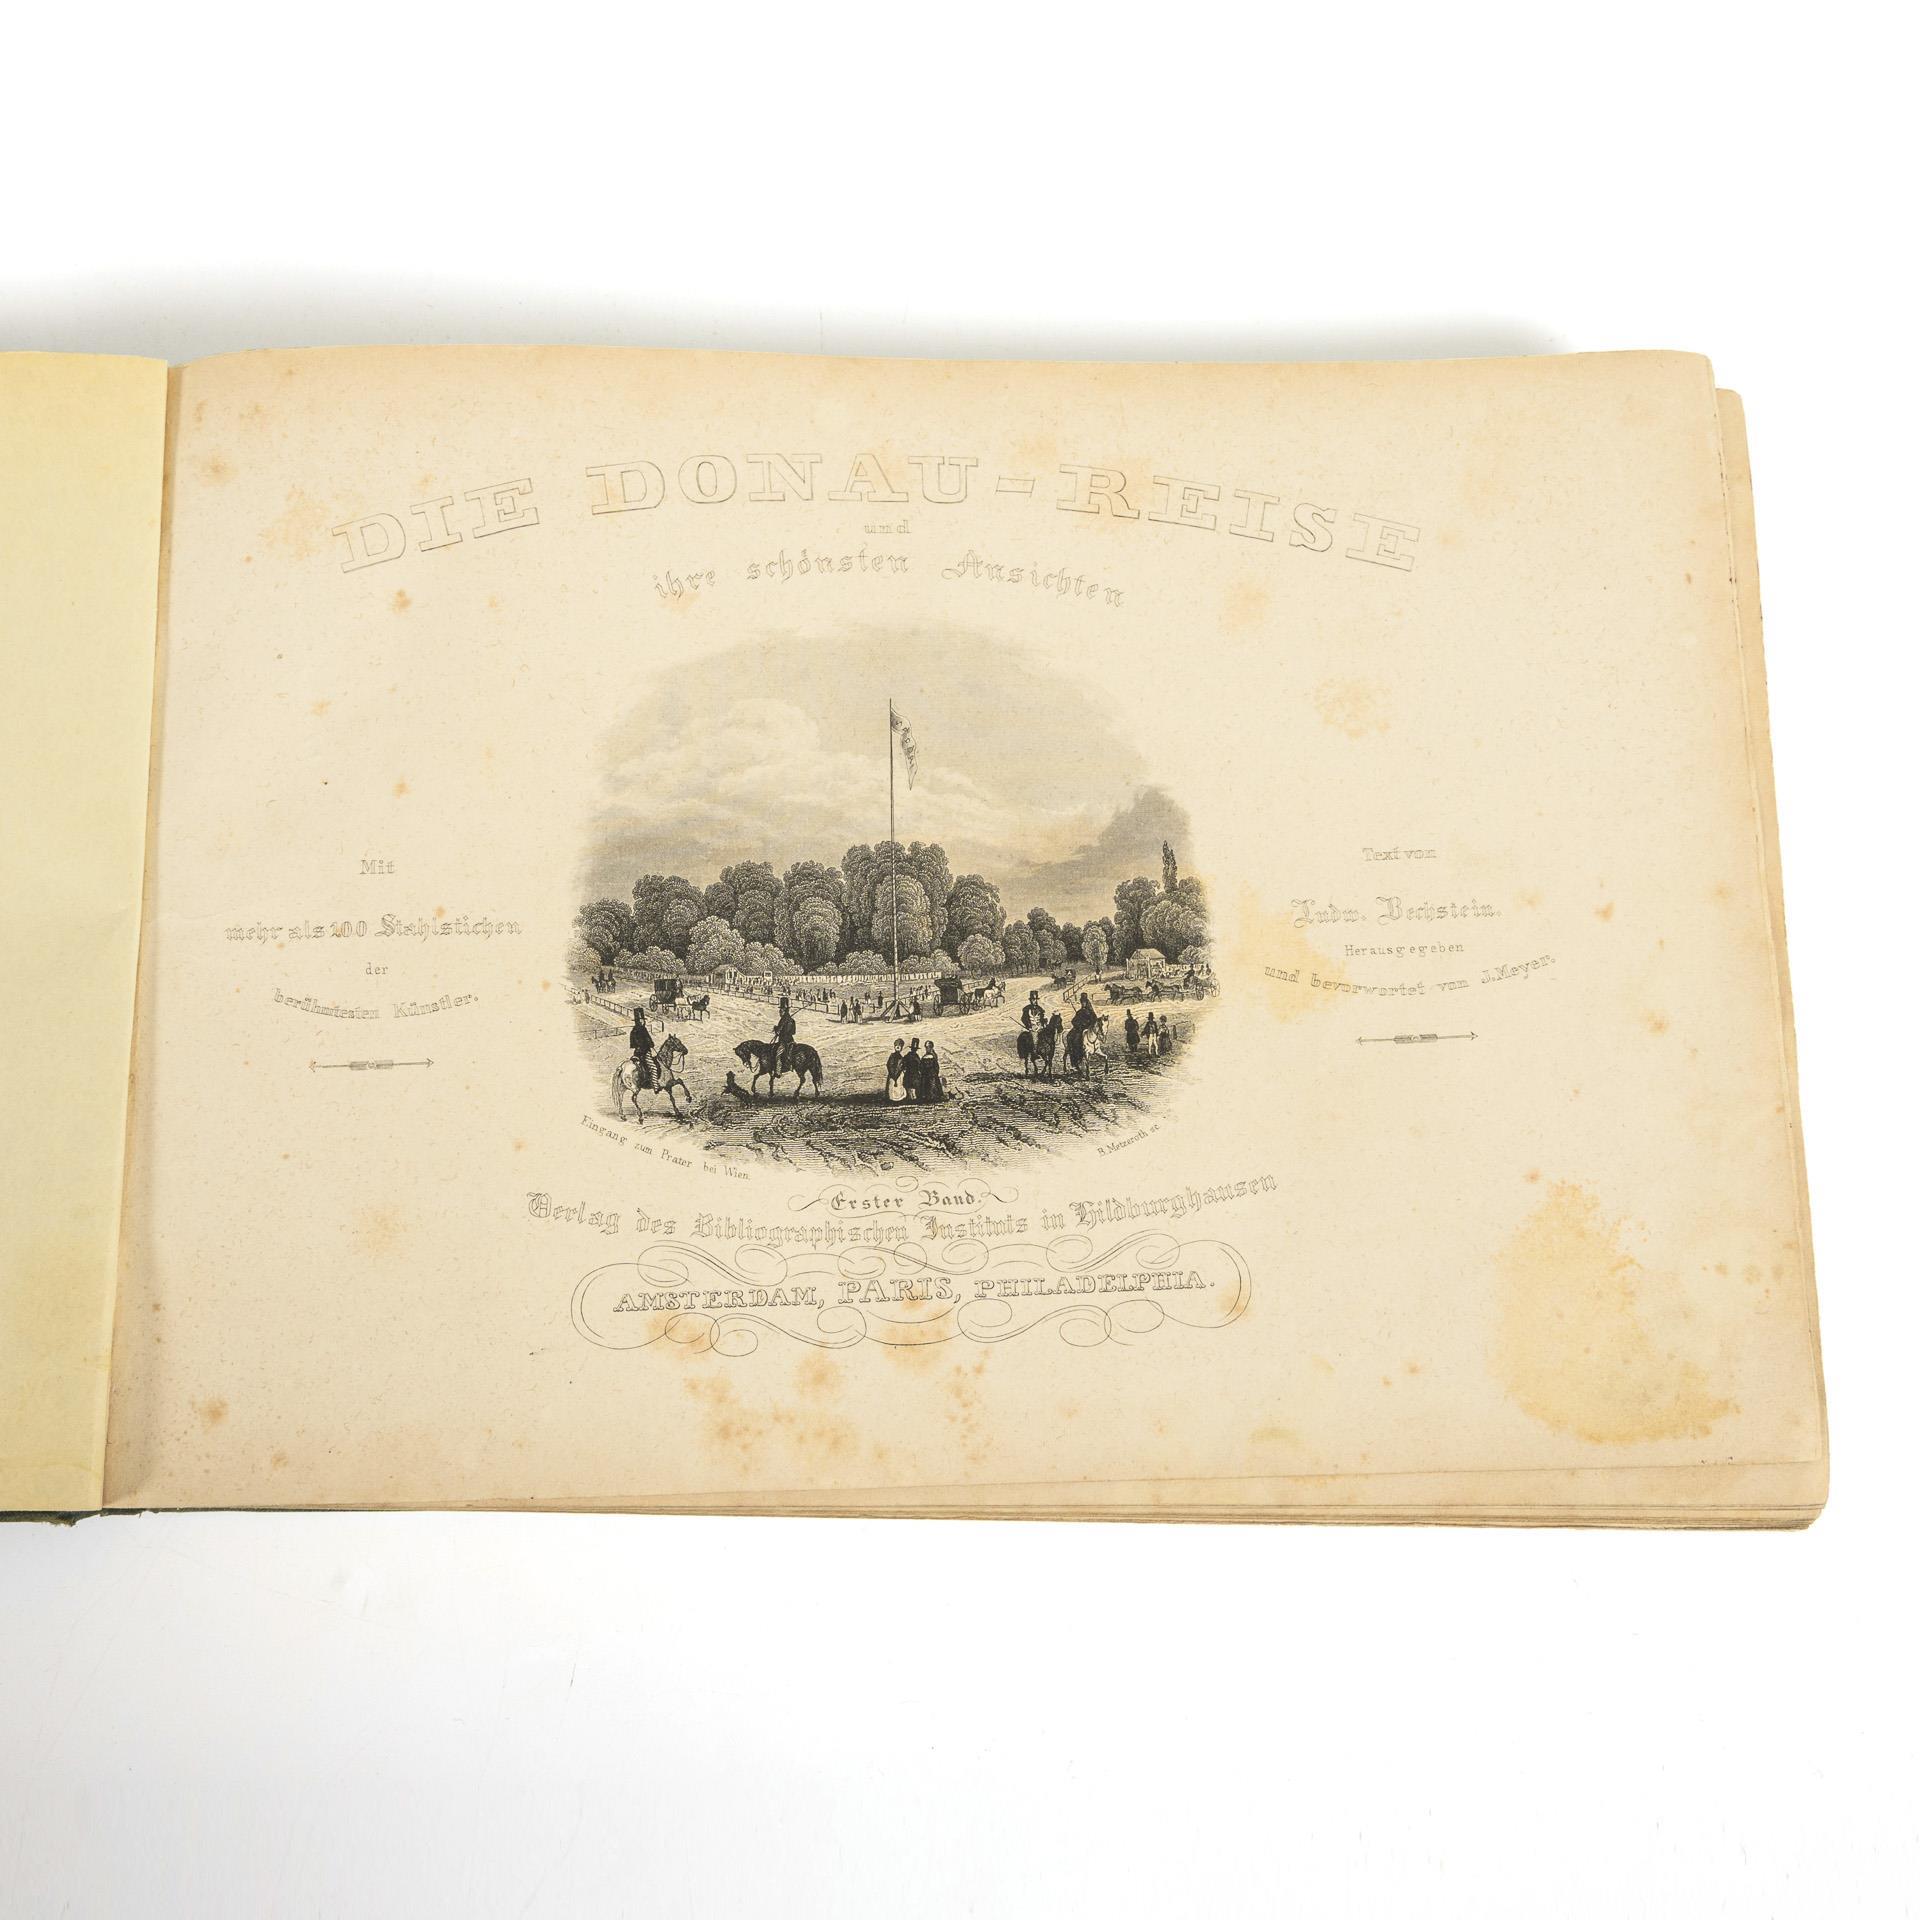 DIE DONAU-REISE
und
ihre schönsten Ansichten
Mit
mehr als 100 Stahlstichen
der
berühmtesten Künstler.
Text von
Ludw. Bechstein.
Herausgegeben
und bevorwortet von J. Meyer.
Eingang zum Prater bei Wien.
B. Metzeroth sc.
Erster Band.
Verlag des Bibliographischen Instituts in Hildburghausen
AMSTERDAM, PARIS, PHILADELPHIA.